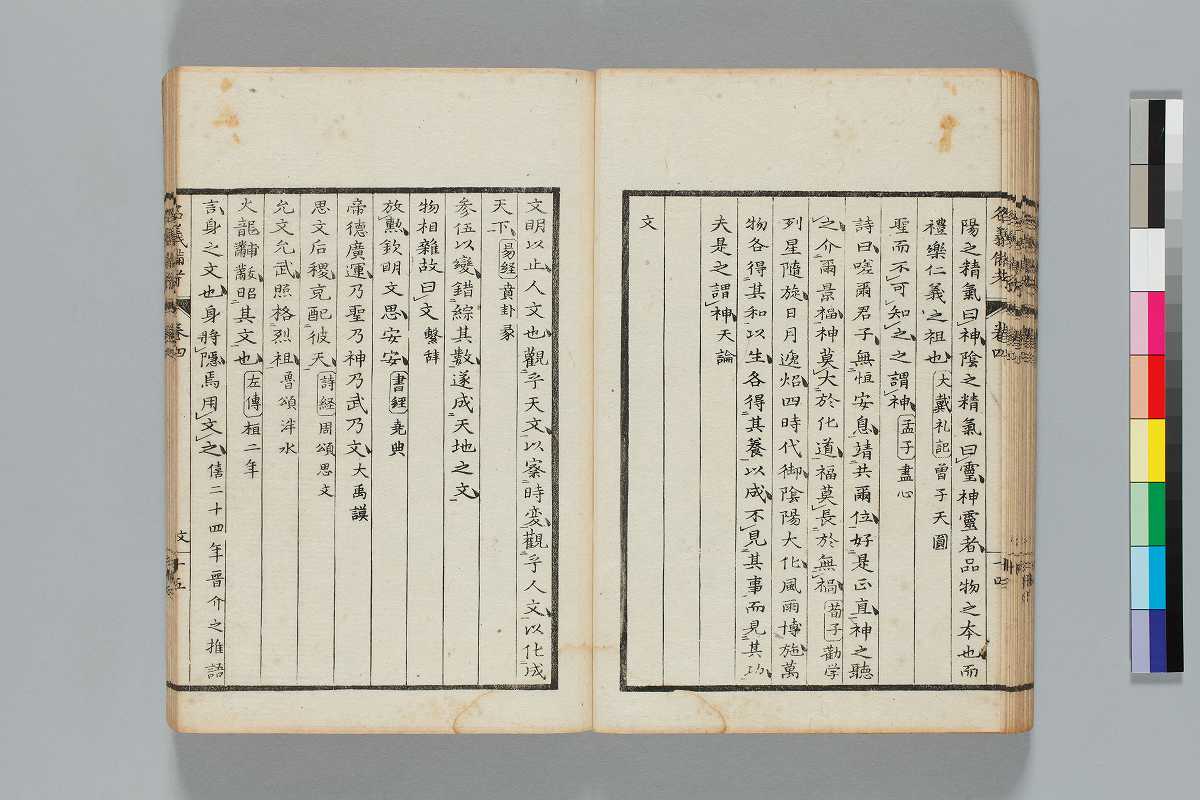 陽之精氣曰神陰之精氣曰靈神靈者品物之本也而
禮樂仁義之祖也大戴礼記曽子天圓
聖而不可知之之謂神孟子盡心
詩曰嗟爾君子無恒安息靖共爾位好是正直神之聽
之介爾景福神莫大於化道福莫長於無禍荀子勸学
列星隨旋日月逓炤四時代御陰陽大化風雨博施萬
物各得其和以生各得其養以成不見其事而見其功
夫是之謂神天論
文
卷四
文明以止人文也觀乎天文以察時変觀乎人文以化成
天下易経賁卦彖
参伍以變錯綜其数遂成天地之文
物相雜故曰文繫辞
放勲欽明文思安安書経堯典
帝德廣運乃聖乃神乃武乃文大禹謨
思文后稷克配彼天詩経周頌思文
允文允武照格烈祖魯頌泮水
火龍黼黻昭其文也左傳桓二年
言身之文也身將隱焉用文之僖二十四年晋介之推語
卷四
文
十五